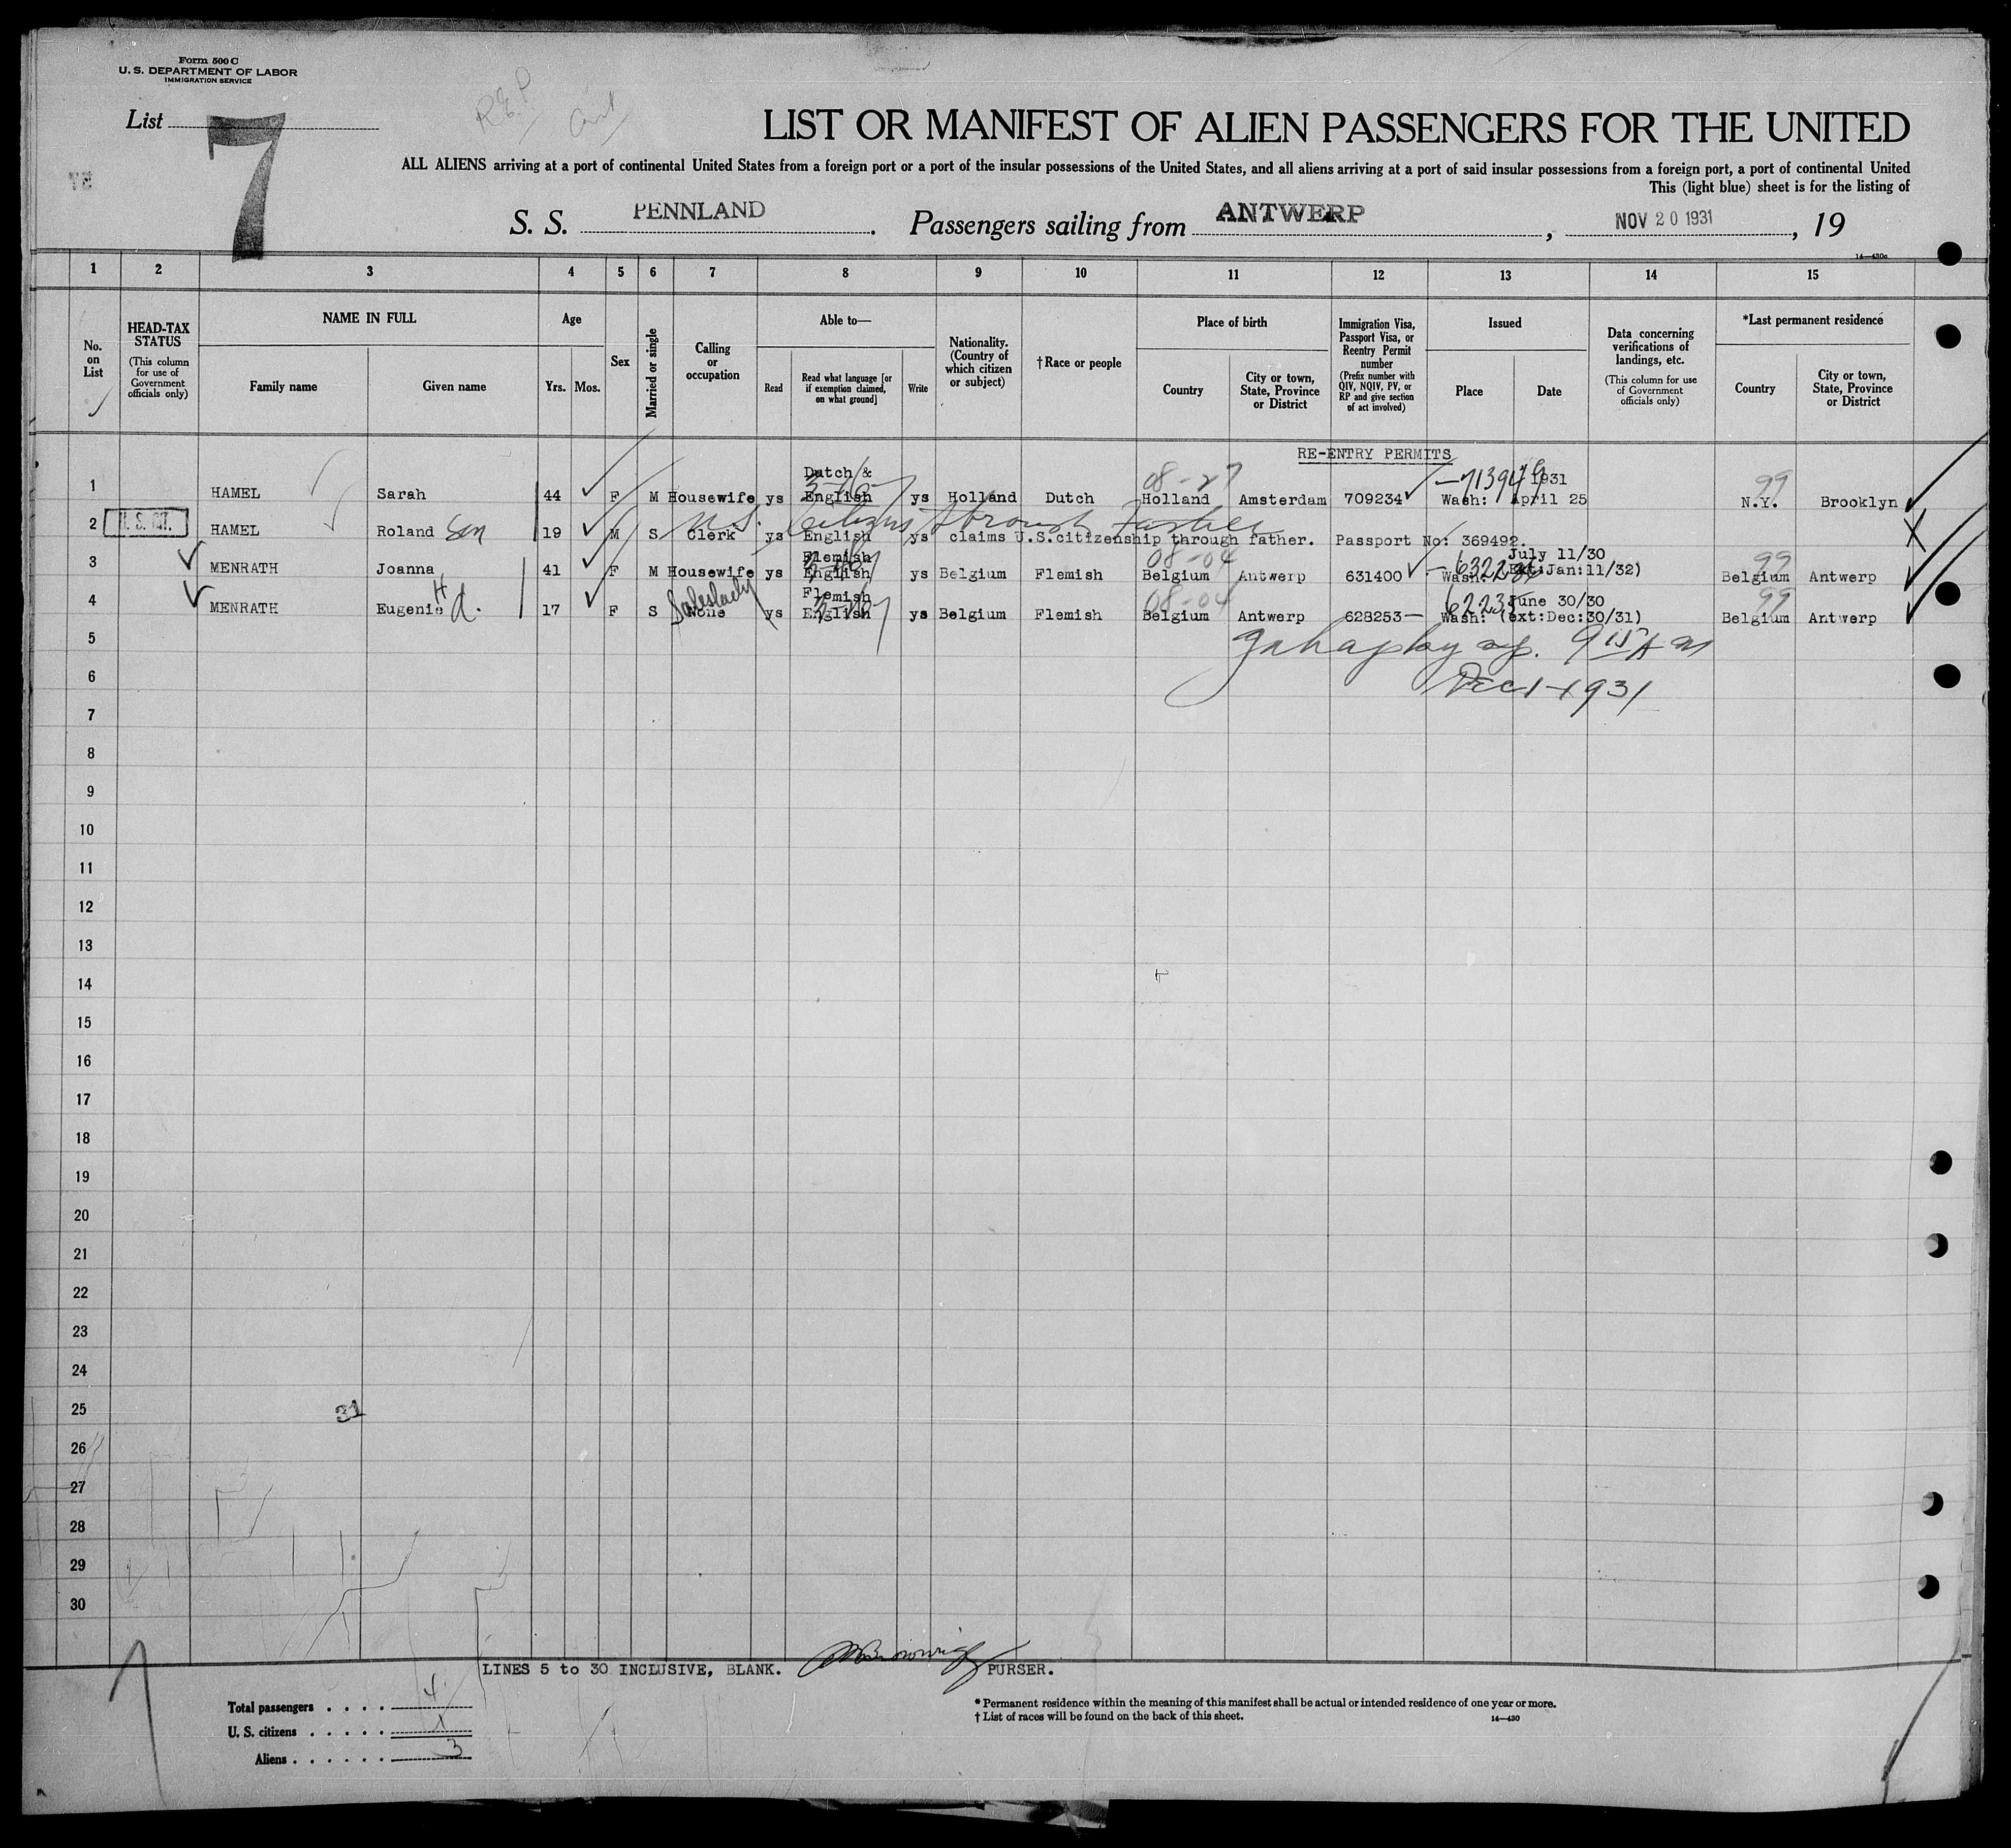 Form 500 C
U. S. DEPARTMENT OF LABOR
IMMIGRATION SERVICE
List 7
LIST OR MANIFEST OF ALIEN PASSENGERS FOR THE UNITED
ALL ALIENS arriving at a port of continental United States from a foreign port or a port of the insular possessions of the United States, and all aliens arriving at a port of said insular possessions from a foreign port, a port of continental United
This (light blue) sheet is for the listing of
S. S. PENNLAND. Passengers sailing from ANTWERP, NOV 20 1931, 19
14—430c
1 2 3 4 5 6 7 8 9 10 11 12 13 14 15
No. on List
HEAD-TAX STATUS (This column for use of Government officials only)
NAME IN FULL Family name Given name
Age Yrs. Mos.
Sex
Married or single
Calling or occupation
Able to— Read Read what language [or if exemption claimed, on what ground] Write
Nationality. (Country of which citizen or subject)
†Race or people
Place of birth Country City or town, State, Province or District
Immigration Visa, Passport Visa, or Reentry Permit number (Prefix number with QIV, NQIV, PV, or RP and give section of act involved)
Issued Place Date
Data concerning verifications of landings, etc. (This column for use of Government officials only)
*Last permanent residence Country City or town, State, Province or District
RE-ENTRY PERMITS
1 HAMEL Sarah 44 F M Housewife ys Dutch & English ys Holland Dutch 08-27 Holland Amsterdam 709234 Wash: April 25 1931 99 N.Y. Brooklyn
U.S. Citizen through Father
2 U. S. CIT. HAMEL Roland Son 19 M S Clerk ys English ys claims U.S.citizenship through father. Passport No: 369492.
3 MENRATH Joanna 41 F M Housewife ys Flemish English ys Belgium Flemish 08-04 Belgium Antwerp 631400 Wash: July 11/30 (Ext:Jan:11/32) 99 Belgium Antwerp
4 MENRATH Eugenie H d. 17 F S None Saleslady ys Flemish English ys Belgium Flemish 08-04 Belgium Antwerp 628253 Wash: June 30/30 (ext:Dec:30/31) 99 Belgium Antwerp
5
9 15 A M
6
Dec 1-1931
7
8
9
10
11
12
13
14
15
16
17
18
19
20
21
22
23
24
25
31
26
27
28
29
30
LINES 5 to 30 INCLUSIVE, BLANK. PURSER.
Total passengers . . . . 4
U. S. citizens . . . . . 1
Aliens . . . . . . 3
* Permanent residence within the meaning of this manifest shall be actual or intended residence of one year or more.
† List of races will be found on the back of this sheet.
14—430